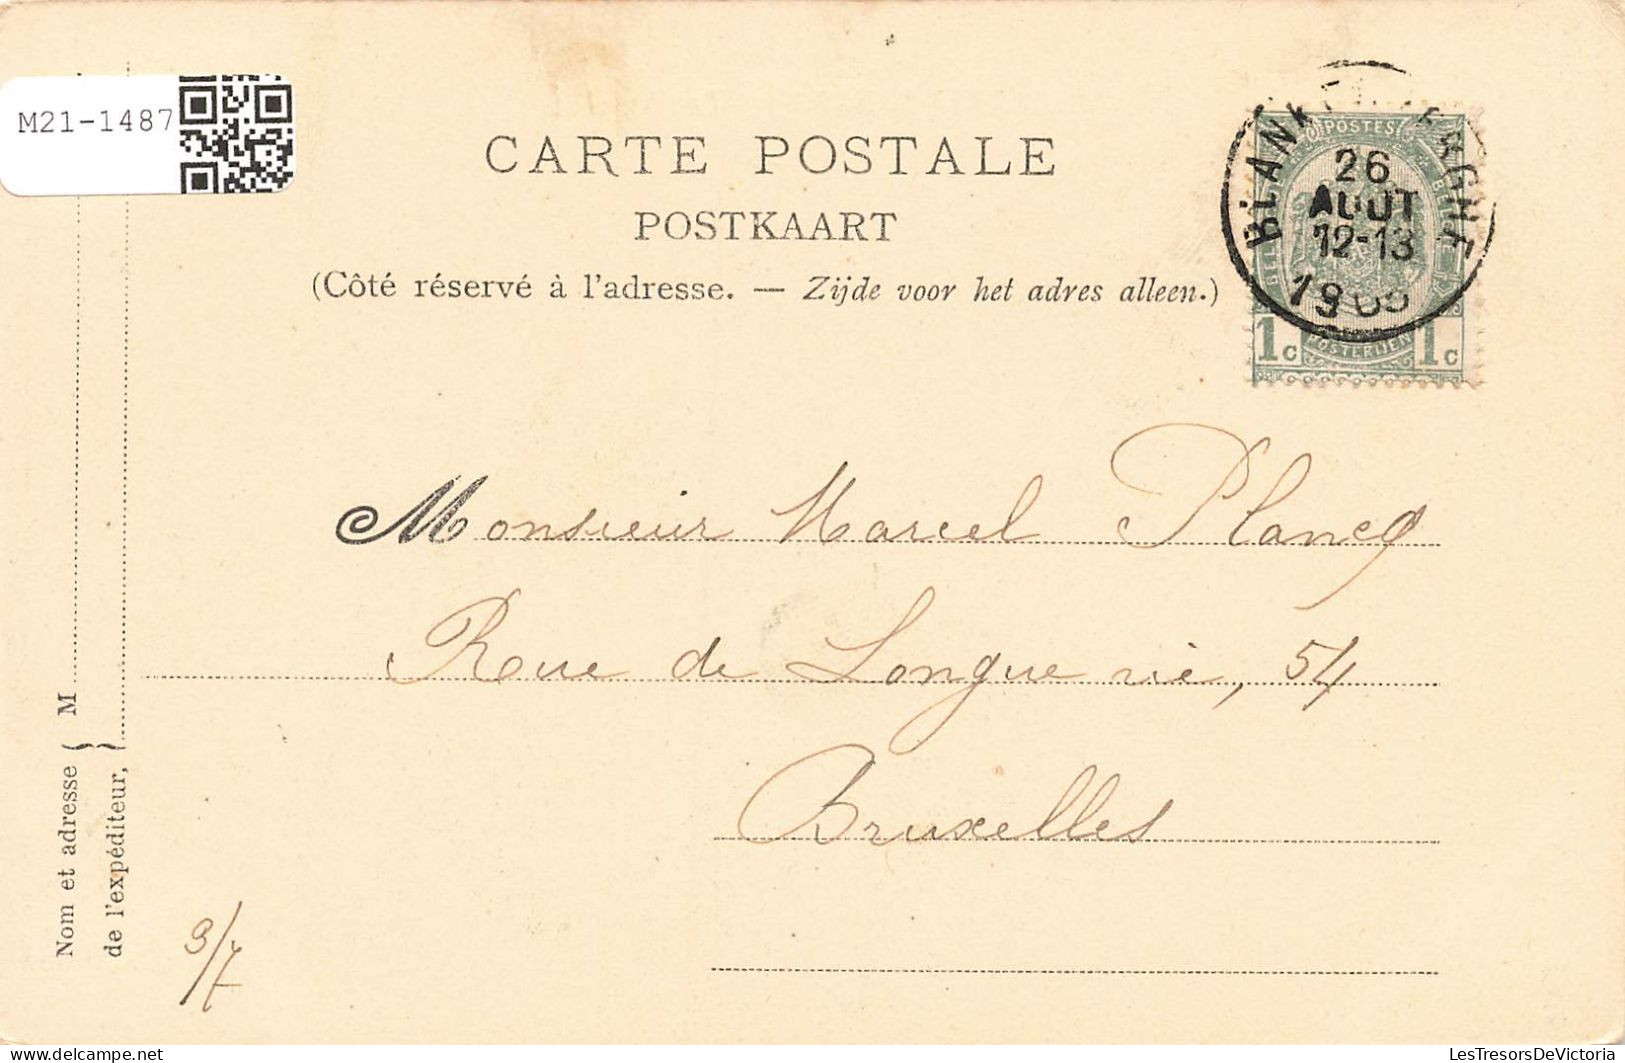 M21-1487
CARTE POSTALE
POSTKAART
(Côté réservé à l'adresse. — Zijde voor het adres alleen.)
POSTES
26
AOUT
12-13
1c 1c
POSTERIJEN
Monsieur Marcel Plancq
Rue de Longue vie, 54
Bruxelles
Nom et adresse { M
de l'expéditeur, }
3/7
delcampe.net
LesTresorsDeVictoria